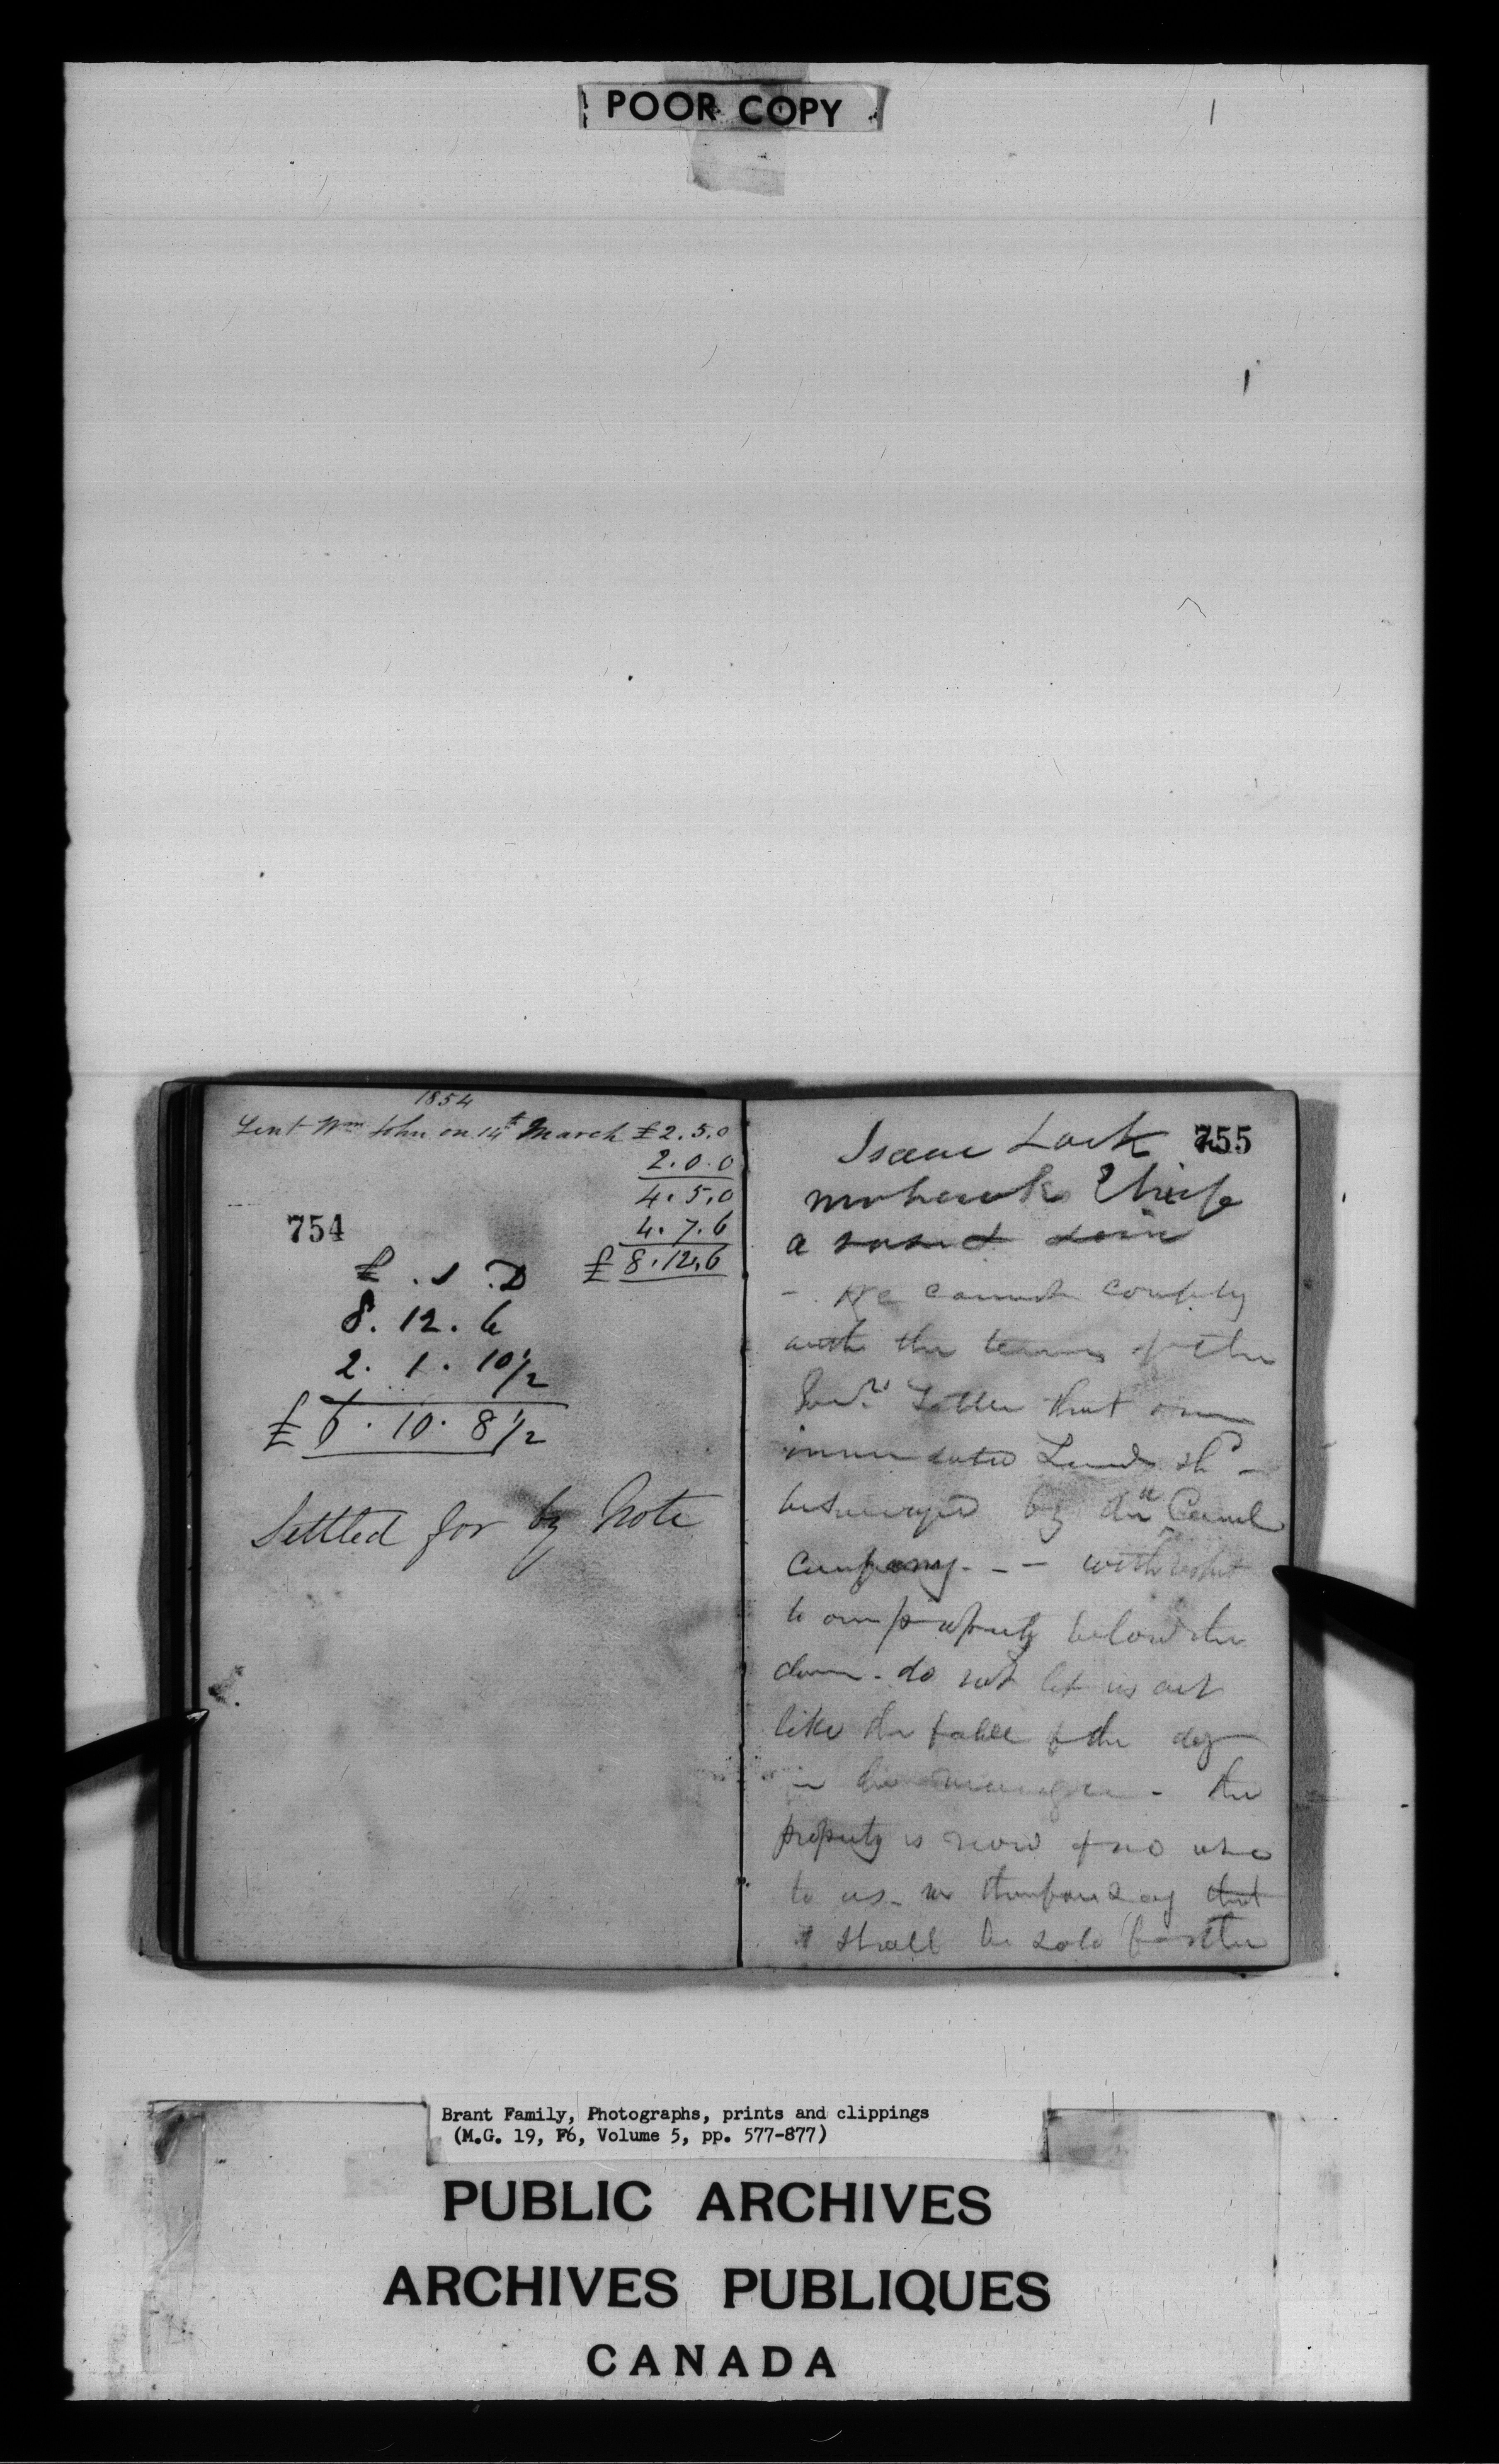 POOR COPY
1854
Lent Wm John on 14t March £2.5.0
2.0.0
4.5.0
4.7.6
£8.12.6
754
£ . S . D
8. 12. 6
2. 1. 10½
£ 6. 10. 8½
Settled for by Note
755
Isaac Lock
mohawk Chief
a
- We cannot comply
with the terms of the
Letter that our
Lands shd -
by the Canal
company. - - with respect
to our property below the
dam - do not let us act
like the fable of the dog
in the manger - the
property is now of no use
to us - we therefore say that
it shall be sold for the
Brant Family, Photographs, prints and clippings
(M.G. 19, F6, Volume 5, pp. 577-877)
PUBLIC ARCHIVES
ARCHIVES PUBLIQUES
CANADA